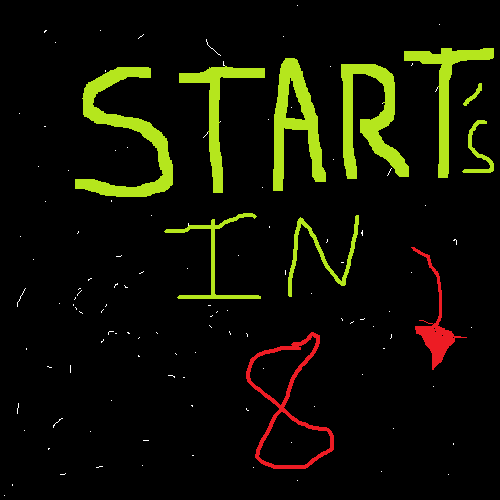 START's
IN
8